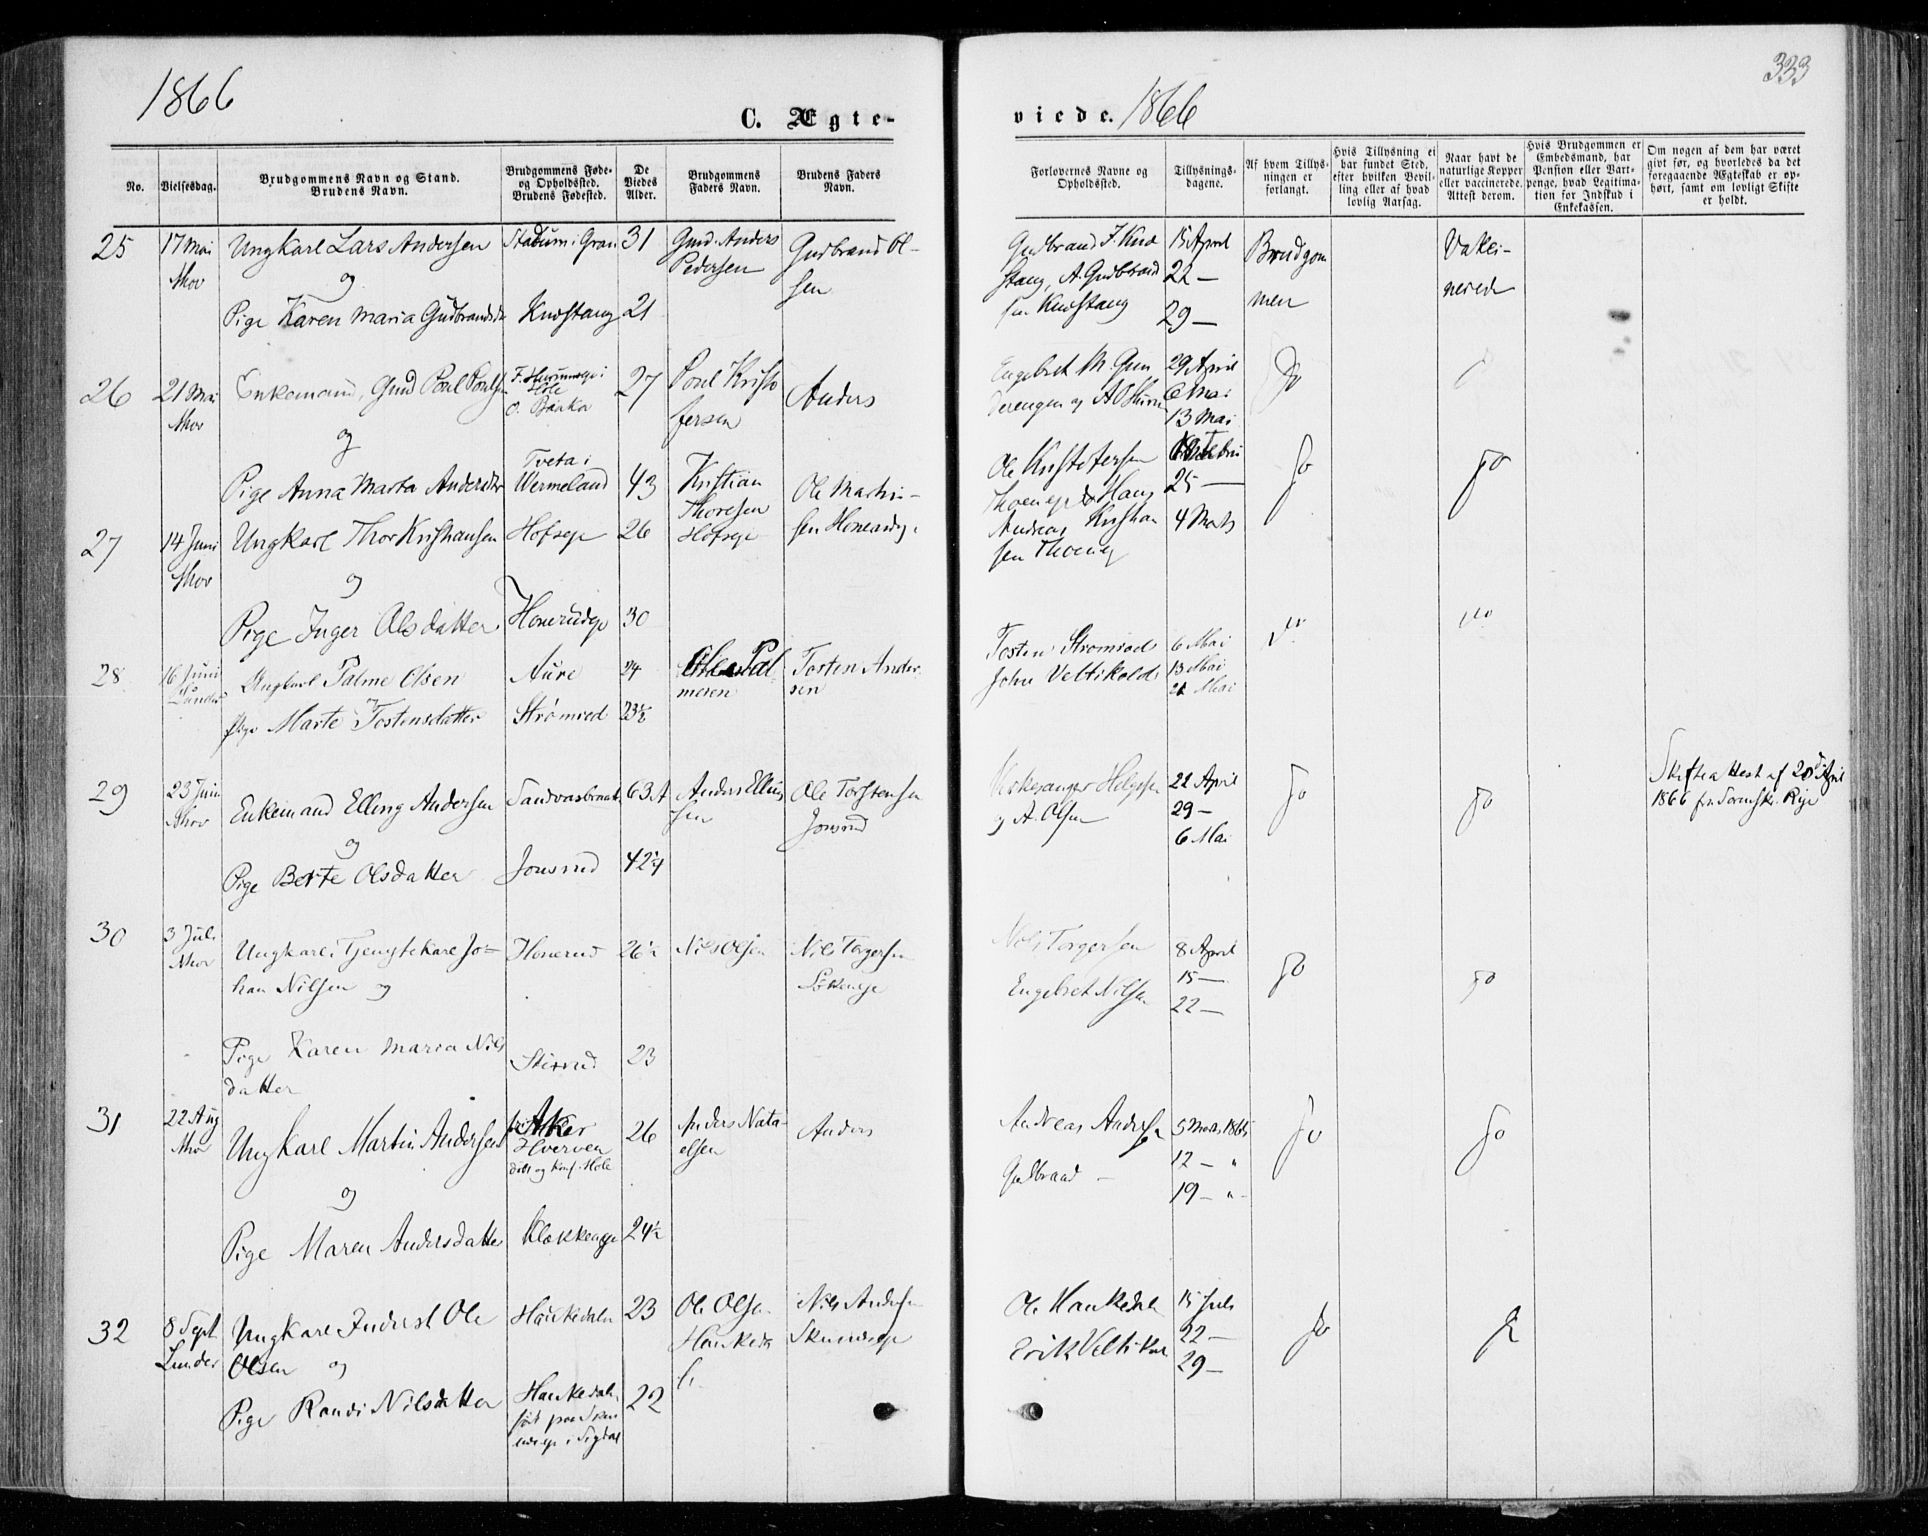 1866
C. Ægte-
No.
Vielsesdag.
Brudgommens Navn og Stand.
Brudens Navn.
Brudgommens Føde-
og Opholdssted.
Brudens Fødested.
De
Viedes
Alder.
Brudgommens
Faders Navn.
Brudens Faders
Navn.
25
17 Mai
Ungkarl Lars Andersen
i Gran
31
Gmd. Anders
Pedersen
Gudbrand Ol-
sen
og
Pige Karen Maria Gudbrandsd
Knestang
21
26
21 Mai
Enkemand, Gmd Poul Poulsen
Hole
27
Poul Kristo
fersen
Anders
og
Pige Anna Marta Andersdtr
Tveta i
Wermeland
43
27
14 Juni
Ungkarl Thor Kristiansen
Hofseje
26
Kristian
Thoresen
Hofseje
Ole Martin-
sen
og
Pige Inger Olsdatter
30
28
16 Juni
Lunder
Ungkarl Palme Olsen
Aure
24
Ole Pal-
mesen
Tosten Ander-
sen
og
Pige Marte Tostensdatter
Strømred
23½
29
23 Juni
Enkemand Elling Andersen
Sandvasbraaten
63
Anders Elling
sen
Ole Torstensen
Jonsrud
og
Pige Berte Olsdatter
Jonsrud
42
30
3 Juli
Ungkarl, Tjenestekarl Jo-
han Nilsen og
Honerud
26½
Nils Olsen
Nils Torgersen
Pige Karen Maria Nils
datter
23
31
22 Aug
Ungkarl Martin Andersen
Aker
Hverven
døbt og Konf. Hole
26
Anders Nata-
elsen
Anders
og
Pige Maren Andersdatter
Klækkeneje
24½
32
8 Sept
Lunder
Ungkarl Inderst Ole
Olsen og
Haukedalen
23
Ole Olsen
Haukeda
l.
Nils Andersen
Pige Randi Nilsdatter
Haukedalen
i Sigdal
22
333
viede. 1866
Forlovernes Navne og
Opholdssted.
Tillysnings-
dagene.
Af hvem Tillys-
ningen er
forlangt.
Hvis Tillysning ei
har fundet Sted,
efter hvilken Bevil-
ling eller af hvad
lovlig Aarsag.
Naar havt de
naturlige Kopper
eller vaccinerede.
Attest derom.
Hvis Brudgommen er
Embedsmand, har
Pension eller Vart-
penge, hvad Legitima-
tion for Indskud i
Enkekassen.
Om nogen af dem har været
givt før, og hvorledes da det
foregaaende Ægteskab er op-
hørt, samt om lovligt Skifte
er holdt.
Gudbrand J. Kne
stang, A. Gudbrand
sen Knestang
15 April
22 —
29 —
Brudgom
men
Vakci-
nerede
Engebret M. Gun
derengen og
29 April
6 Mai
13 Mai
Do
Ole Kristofersen
Hans
Andreas Kristian
sen
25 —
4 Marts
Do
Do
Tosten Strømred
John Veltikold
6 Mai
13 Mai
21 Mai
Do
Do
Kirkesanger Helgesen
og A. Olsen
22 April
29 —
6 Mai
Do
Do
Skifteattest af 20de April
1866
Nils Torgersen
Engebret Nilsen
8 April
15 —
22 —
Do
Do
Andreas Andersen
Gulbrand —
5 Marts 1865
12 — "
19 — "
Do
Do
Ole Haukedalen
Erik Veltikold
15 Juli
22 —
29 —
Do
Do